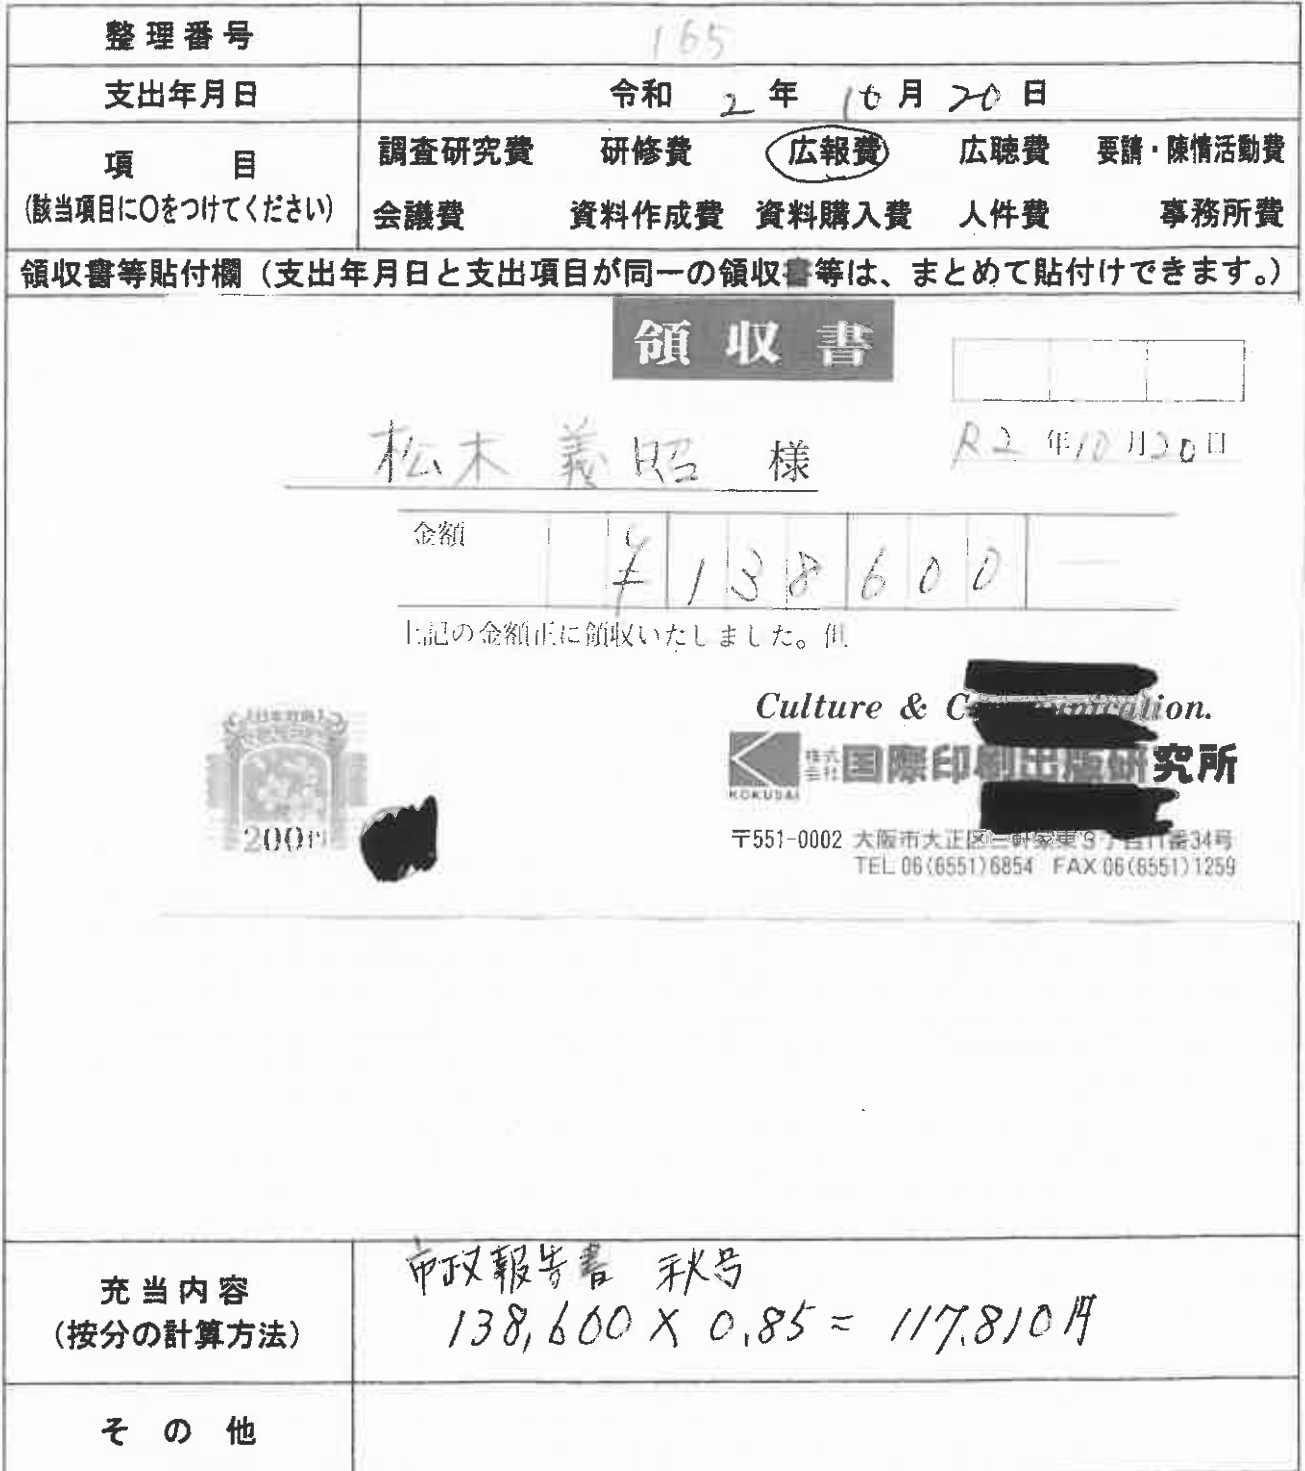 整理番号 165
支出年月日 令和 2 年 10 月 20 日
項 目 調査研究費 研修費 広報費 広聴費 要請・陳情活動費
(該当項目に○をつけてください) 会議費 資料作成費 資料購入費 人件費 事務所費
領収書等貼付欄（支出年月日と支出項目が同一の領収書等は、まとめて貼付けできます。）
領収書
松木 義昭 様
R2 年 10 月 20 日
金額 ¥138600
上記の金額正に領収いたしました。但
Culture & Communication.
株式会社 国際印刷出版研究所
KOKUSAI
200円
〒551-0002 大阪市大正区三軒家東3丁目11番34号
TEL 06(6551)6854 FAX 06(6551)1259
充当内容
(按分の計算方法)
市政報告書 秋号
138,600 × 0.85 = 117,810円
その他